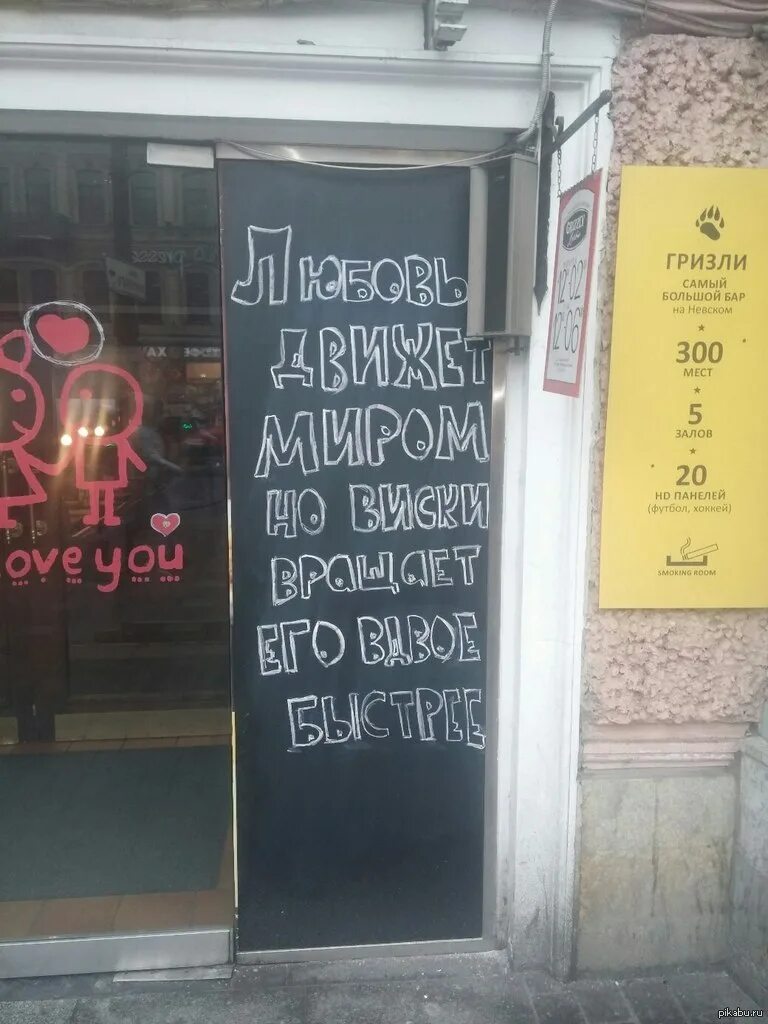 Любовь
движет
миром
но виски
вращает
его вдвое
быстрее
ove you
GRIZZLY
12-02
12-06
ГРИЗЛИ
САМЫЙ
БОЛЬШОЙ БАР
на Невском
300
МЕСТ
5
ЗАЛОВ
20
HD ПАНЕЛЕЙ
(футбол, хоккей)
SMOKING ROOM
pikabu.ru